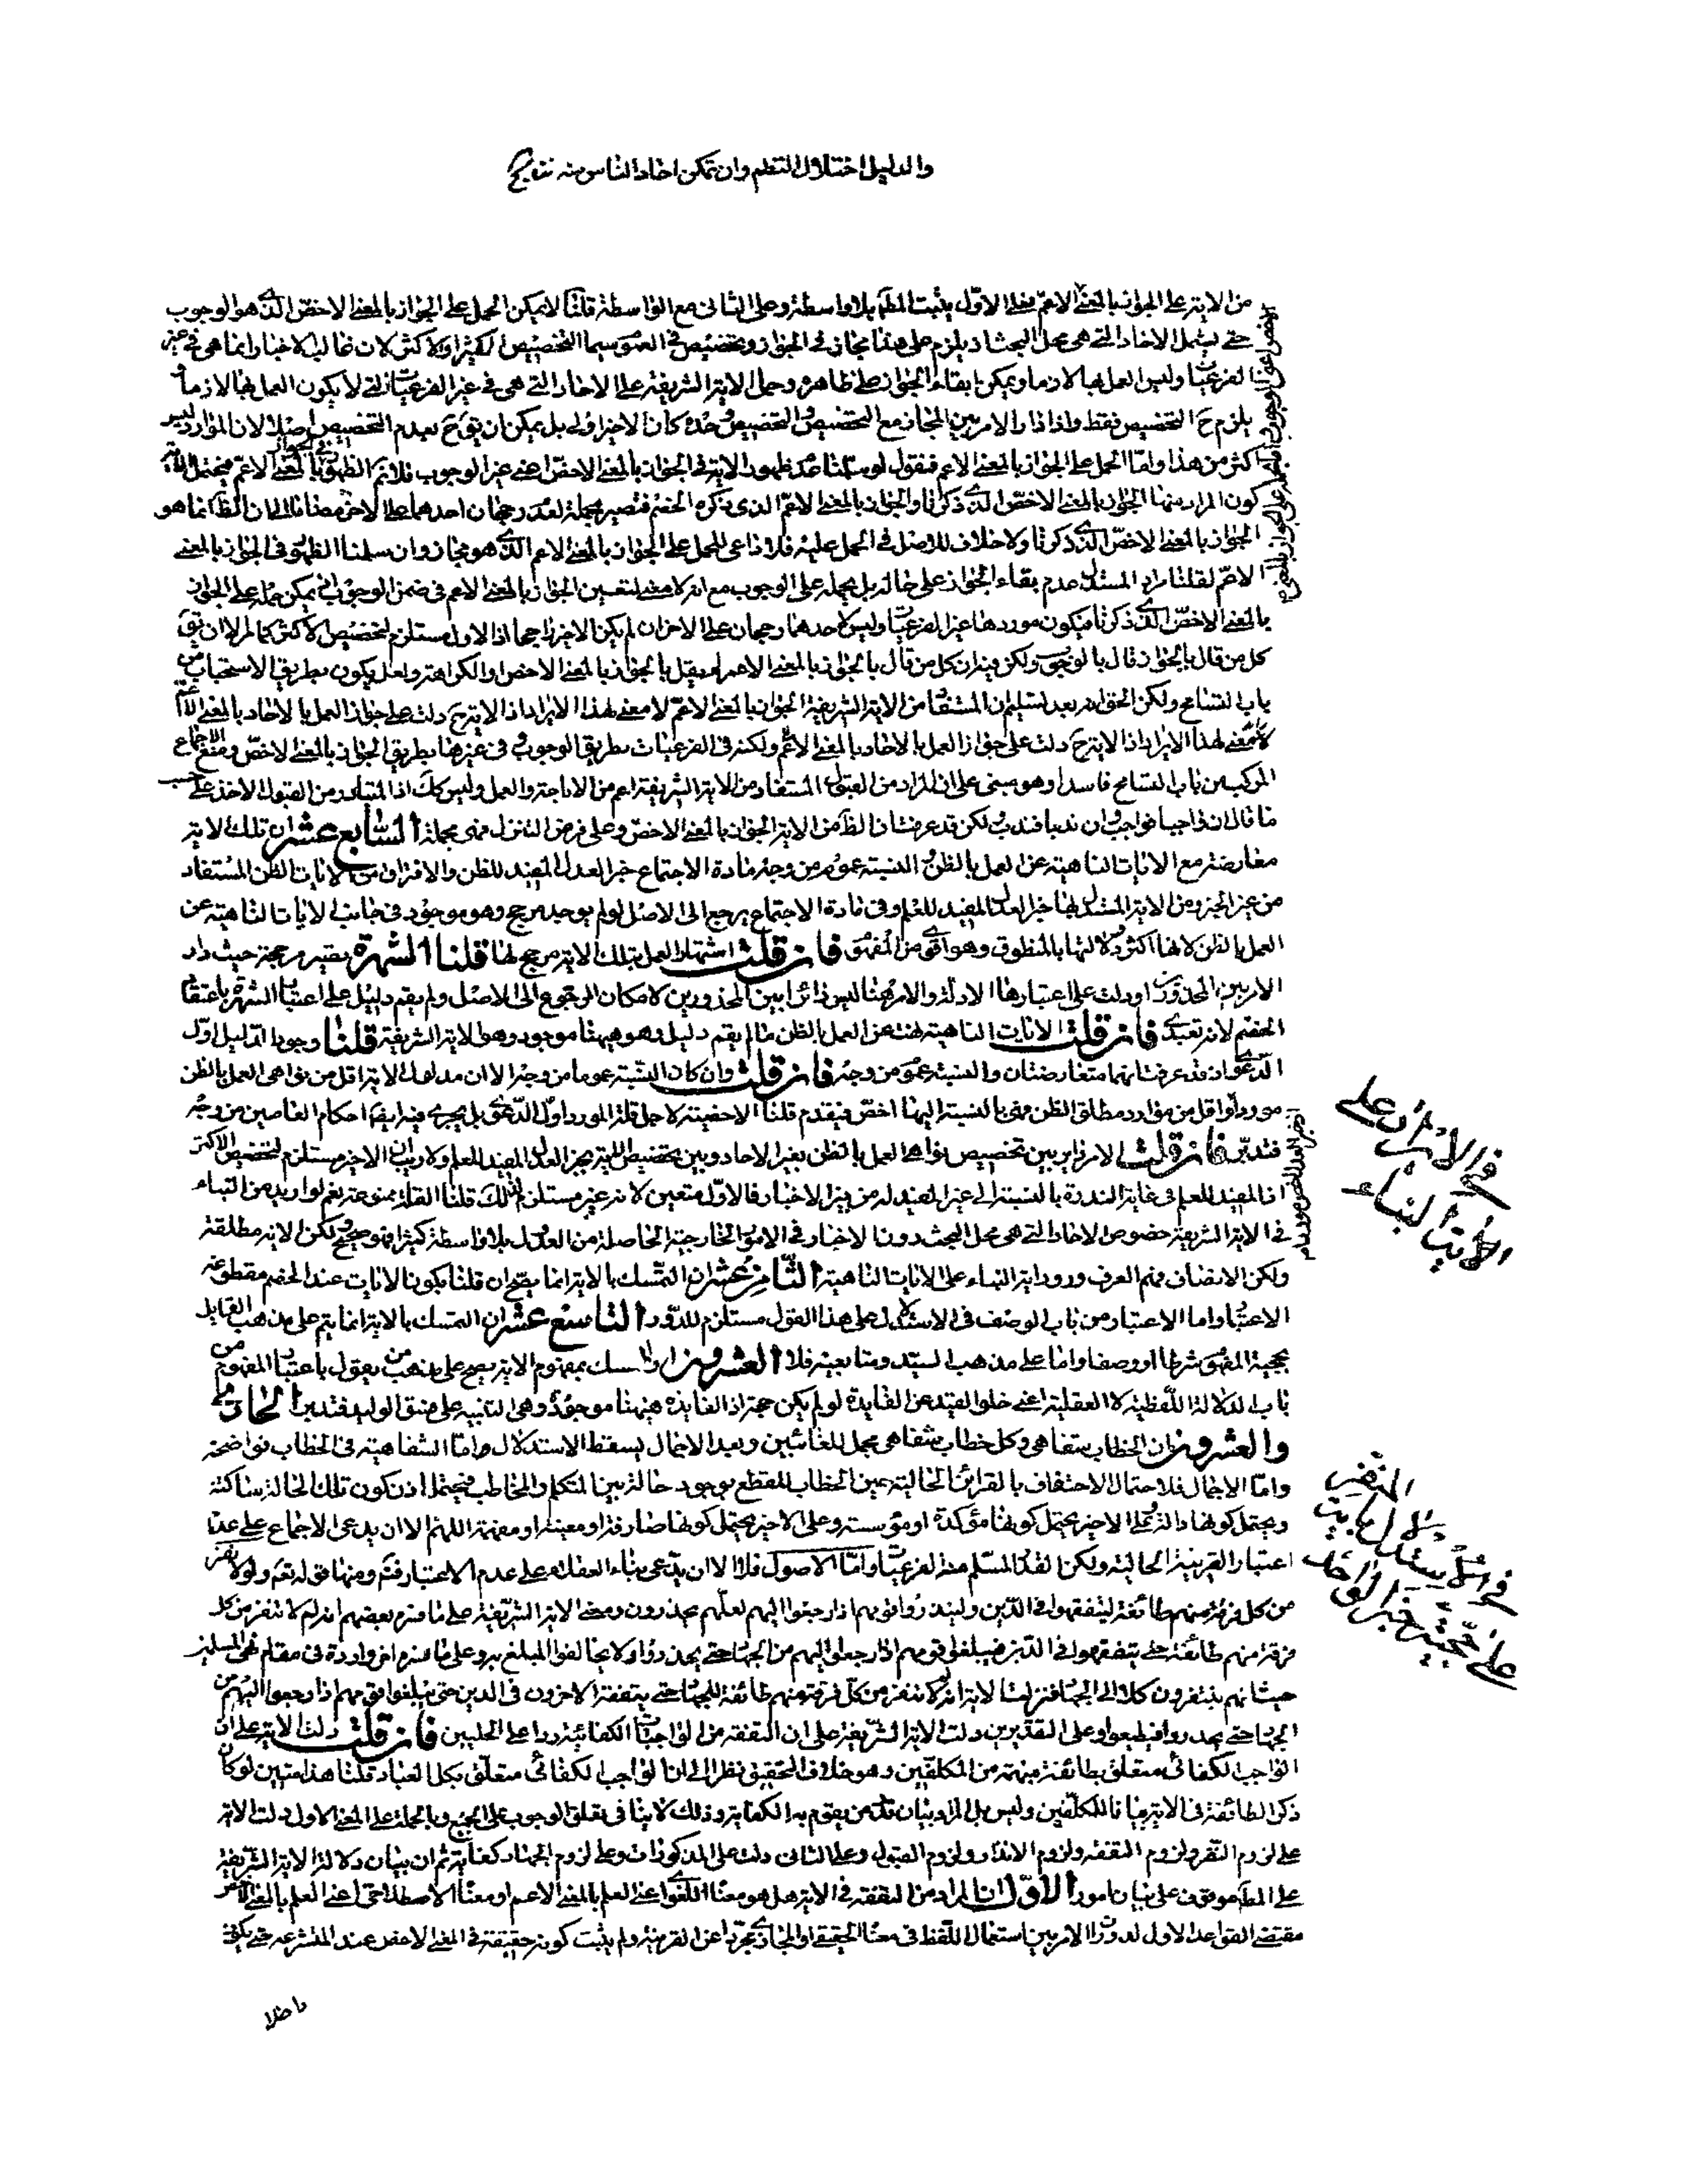 والدليل اختلال النظم وان تمكن احاد الناس منه
من الاية على الجواز بالمعنى الاعم فعلى الاول يثبت المط بلا واسطة وعلى الثانى مع الواسطة قلنا لا يمكن الحمل على الجواز بالمعنى الاخص الذى هو الوجوب
حتى يشمل الاحاد التى هى محل البحث اذ يلزم على هذا مجاز فى الجواز وتخصيص فى العموم سيما التخصيص الكثير او الاكثر لان غالب الاخبار انما هى فى غير
الفرعيات وليس العمل بها لازما ويمكن ابقاء الجواز على ظاهره وحمل الاية الشريفة على الاحاد التى هى فى غير الفرعيات التى لا يكون العمل بها لازما و
يلزم ح التخصيص فقط واذا دار الامر بين المجاز مع التخصيص والتخصيص وحده كان الاخير اولى بل يمكن ان يق ح بعدم التخصيص اصلا لان الموارد ليس
اكثر من هذا واما الحمل على الجواز بالمعنى الاعم فنقول لو سلمنا عدم ظهور الاية فى الجواز بالمعنى الاخص اعنى غير الوجوب فلا نم الظهور بالمعنى الاعم فيحتمل
كون المراد منها الجواز بالمعنى الاخص الذى ذكرنا والجواز بالمعنى الاعم الذى ذكره الخصم فتصير مجملة لعدم رجحان احدهما على الاخر مضافا الى ان الظ انما هو
الجواز بالمعنى الاخص الذى ذكرنا ولا خلاف للاصل فى الحمل عليه فلا داعى للحمل على الجواز بالمعنى الاعم الذى هو مجاز وان سلمنا الظهور فى الجواز بالمعنى
الاعم لقلنا مراد المستدل عدم بقاء الجواز على حاله بل يحمله على الوجوب مع انه لا معنى لتعيين الجواز بالمعنى الاعم فى ضمن الوجوب اذ يمكن حمله على الجواز
بالمعنى الاخص الذى ذكرنا فيكون موردها غير الفرعيات وليس لاحدهما رجحان على الاخر ان لم يكن الاخير راجحا اذ الاول مستلزم لتخصيص الاكثر كما مر الا ان يق
كل من قال بالجواز قال بالوجوب ولكن فيه ان كل من قال بالجواز بالمعنى الاعم لم يقل بالجواز بالمعنى الاخص او الكراهة ولعل يكون بطريق الاستحباب من
باب التسامح ولكن الحق انه بعد تسليم ان المستفاد من الاية الشريفة الجواز بالمعنى الاعم لا معنى لهذا الايراد اذ الاية ح دلت على جواز العمل بالاحاد بالمعنى الاعم
لا معنى لهذا الايراد اذ الاية ح دلت على جواز العمل بالاحاد بالمعنى الاعم ولكنه فى الفرعيات بطريق الوجوب وفى غيرها بطريق الجواز بالمعنى الاخص ومنع الاجماع
المركب من باب التسامح فاسد وهو مبنى على ان المراد من القبول المستفاد من الاية الشريفة اعم من الاباحة والعمل وليس كك اذ المتبادر من القبول الاخذ على حسب
ما قال ان واجبا فواجب وان ندبا فندب لكن قد عرفت ان الظ من الاية الجواز بالمعنى الاخص وعلى فرض التنزل فهى مجملة السابع عشر ان تلك الاية
معارضة مع الايات الناهية عن العمل بالظن والنسبة عموم من وجه مادة الاجتماع خبر العدل المفيد للظن والافتراق من الايات الظن المستفاد
من غير الخبر ومن الاية المستدل بها خبر العدل المفيد للعلم وفى مادة الاجتماع يرجع الى الاصل لو لم يوجد مرجح وهو موجود فى جانب الايات الناهية عن
العمل بالظن لانها اكثر ودلالتها بالمنطوق وهو اقوى من المفهوم فان قلت اشتهار العمل بتلك الاية مرجح لها قلنا الشهرة يصير مرجحة حيث دار
الامر بين المحذورين او دلت على اعتبارها الادلة والامر هنا ليس دائرا بين المحذورين لامكان الرجوع الى الاصل ولم يقم دليل على اعتبار الشهرة باعتقاد
الخصم لانه تعبدى فان قلت الايات الناهية نهت عن العمل بالظن ما لم يقم دليل وهو هيهنا موجود وهو الاية الشريفة قلنا وجود الدليل اول
الدعوى اذ قد عرفت انهما متعارضتان والنسبة عموم من وجه فان قلت وان كان النسبة عموما من وجه الا ان مدلول الاية اقل من نواهى العمل بالظن
موردا واقل من موارد مطلق الظن فهى بالنسبة اليها اخص فيقدم قلنا الاخصية لاجل قلة المورد اول الدعوى بل يجرى فيه ايضا احكام العامين من وجه
فتدبر فان قلت الامر دائر بين تخصيص نواهى العمل بالظن بغير الاحاد وبين تخصيص الاية بخبر العدل المفيد للعلم ولا ريب ان الاخير مستلزم لتخصيص الاكثر
اذ المفيد للعلم فى غاية الندرة بالنسبة الى غير المفيد له من بين الاخبار فالاول متعين لانه غير مستلزم لذلك قلنا القلة ممنوعة نعم لو اريد من النباء
فى الاية الشريفة خصوص الاحاد التى هى محل البحث دون الاخبار فى الامور الخارجية الحاصلة من العدول بلا واسطة كثيرا فهو صحيح لكن الاية مطلقة
ولكن الانصاف فهم العرف ورود اية النباء على الايات الناهية الثامن عشر ان التمسك بالاية انما يصح ان قلنا بكون الايات عند الخصم مقطوعة
الاعتبار واما الاعتبار من باب الوصف فى الاستدلال على هذا القول مستلزم للدور التاسع عشر ان التمسك بالاية انما يتم على مذهب القائل
بحجية المفهوم شرطا او وصفا واما على مذهب السيد ومتابعيه فلا العشرون ان التمسك بمفهوم الاية يصح على مذهب من يقول باعتبار المفهوم من
باب الدلالة اللفظية لا العقلية اعنى خلو القيد عن الفايدة لو لم يكن حجة اذ الفايدة هيهنا موجودة وهى التنبيه على فسق الوليد فتدبر الحادى
والعشرون ان الخطاب شفاهى وكل خطاب شفاهى مجمل للغائبين وبعد الاجمال يسقط الاستدلال واما الشفاهية فى الخطاب فواضحة
واما الاجمال فلاحتمال الاحتفاف بالقرائن الحالية حين الخطاب للقطع بوجود حالة بين المتكلم والمخاطب فيحتمل ان تكون تلك الحالة ساكتة
ويحتمل كونها دالة وعلى الاخير يحتمل كونها مؤكدة او مؤسسة وعلى الاخير يحتمل كونها صارفة او معينة او مفهمة اللهم الا ان يدعى الاجماع على عدم
اعتبار القرينة الحالية ولكن القدر المسلم منه الفرعيات واما الاصول فلا الا ان يدعى بناء العقلاء على عدم الاعتبار فتم ومنها قوله تعم ولولا نفر
من كل فرقة منهم طائفة ليتفقهوا فى الدين ولينذروا قومهم اذا رجعوا اليهم لعلهم يحذرون ومعنى الاية الشريفة على ما فسره بعضهم انه لم لا تنفر من كل
فرقة منهم طائفة حتى يتفقهوا فى الدين فيبلغوا قومهم اذا رجعوا اليهم من الجهاد حتى يحذروا ولا يخالفوا المبلغ به وعلى ما فسره اخر واردة فى مقام نهى المسلمين
حيث انهم ينتفرون كلا الى الجهاد فنزلت الاية انه لم لا تنفر من كل فرقة منهم طائفة للجهاد حتى يتفقه الاخرون فى الدين حتى يبلغوا قومهم اذا رجعوا اليهم من
الجهاد حتى يحذروا فيطيعوا وعلى التقديرين دلت الاية الشريفة على ان التفقه من الواجبات الكفائية ردا على الحلبيين فان قلت دلت الاية على ان
الواجب الكفائى متعلق بطائفة مبهمة من المكلفين وهو خلاف التحقيق نظرا الى ان الواجب الكفائى متعلق بكل العباد قلنا هذا متين لو كان
ذكر الطائفة فى الاية بيانا للمكلفين وليس بل المراد بيان قدر من يقوم به الكفاية وذلك لا ينافى تعلق الوجوب على الجميع وبالجملة على المعنى الاول دلت الاية
على لزوم النفر ولزوم التفقه ولزوم الانذار ولزوم القبول وعلى الثانى دلت على المذكورات وعلى لزوم الجهاد كفاية ثم ان بيان دلالة الاية الشريفة
على المط موقوف على بيان امور الاول ان المراد من التفقه فى الاية هل هو معناه اللغوى اعنى العلم بالمعنى الاعم او معناه الاصطلاحى اعنى العلم بالمعنى الاخص
مقتضى القواعد الاول لدوران الامر بين استعمال اللفظ فى معناه الحقيقى او المجازى مجردا عن القرينة ولم يثبت كونه حقيقة فى المعنى الاخص عند المتشرعة حتى يكون
فى الايراد على
اية النباء
فى الاستدلال باية النفر
على حجية خبر الواحد